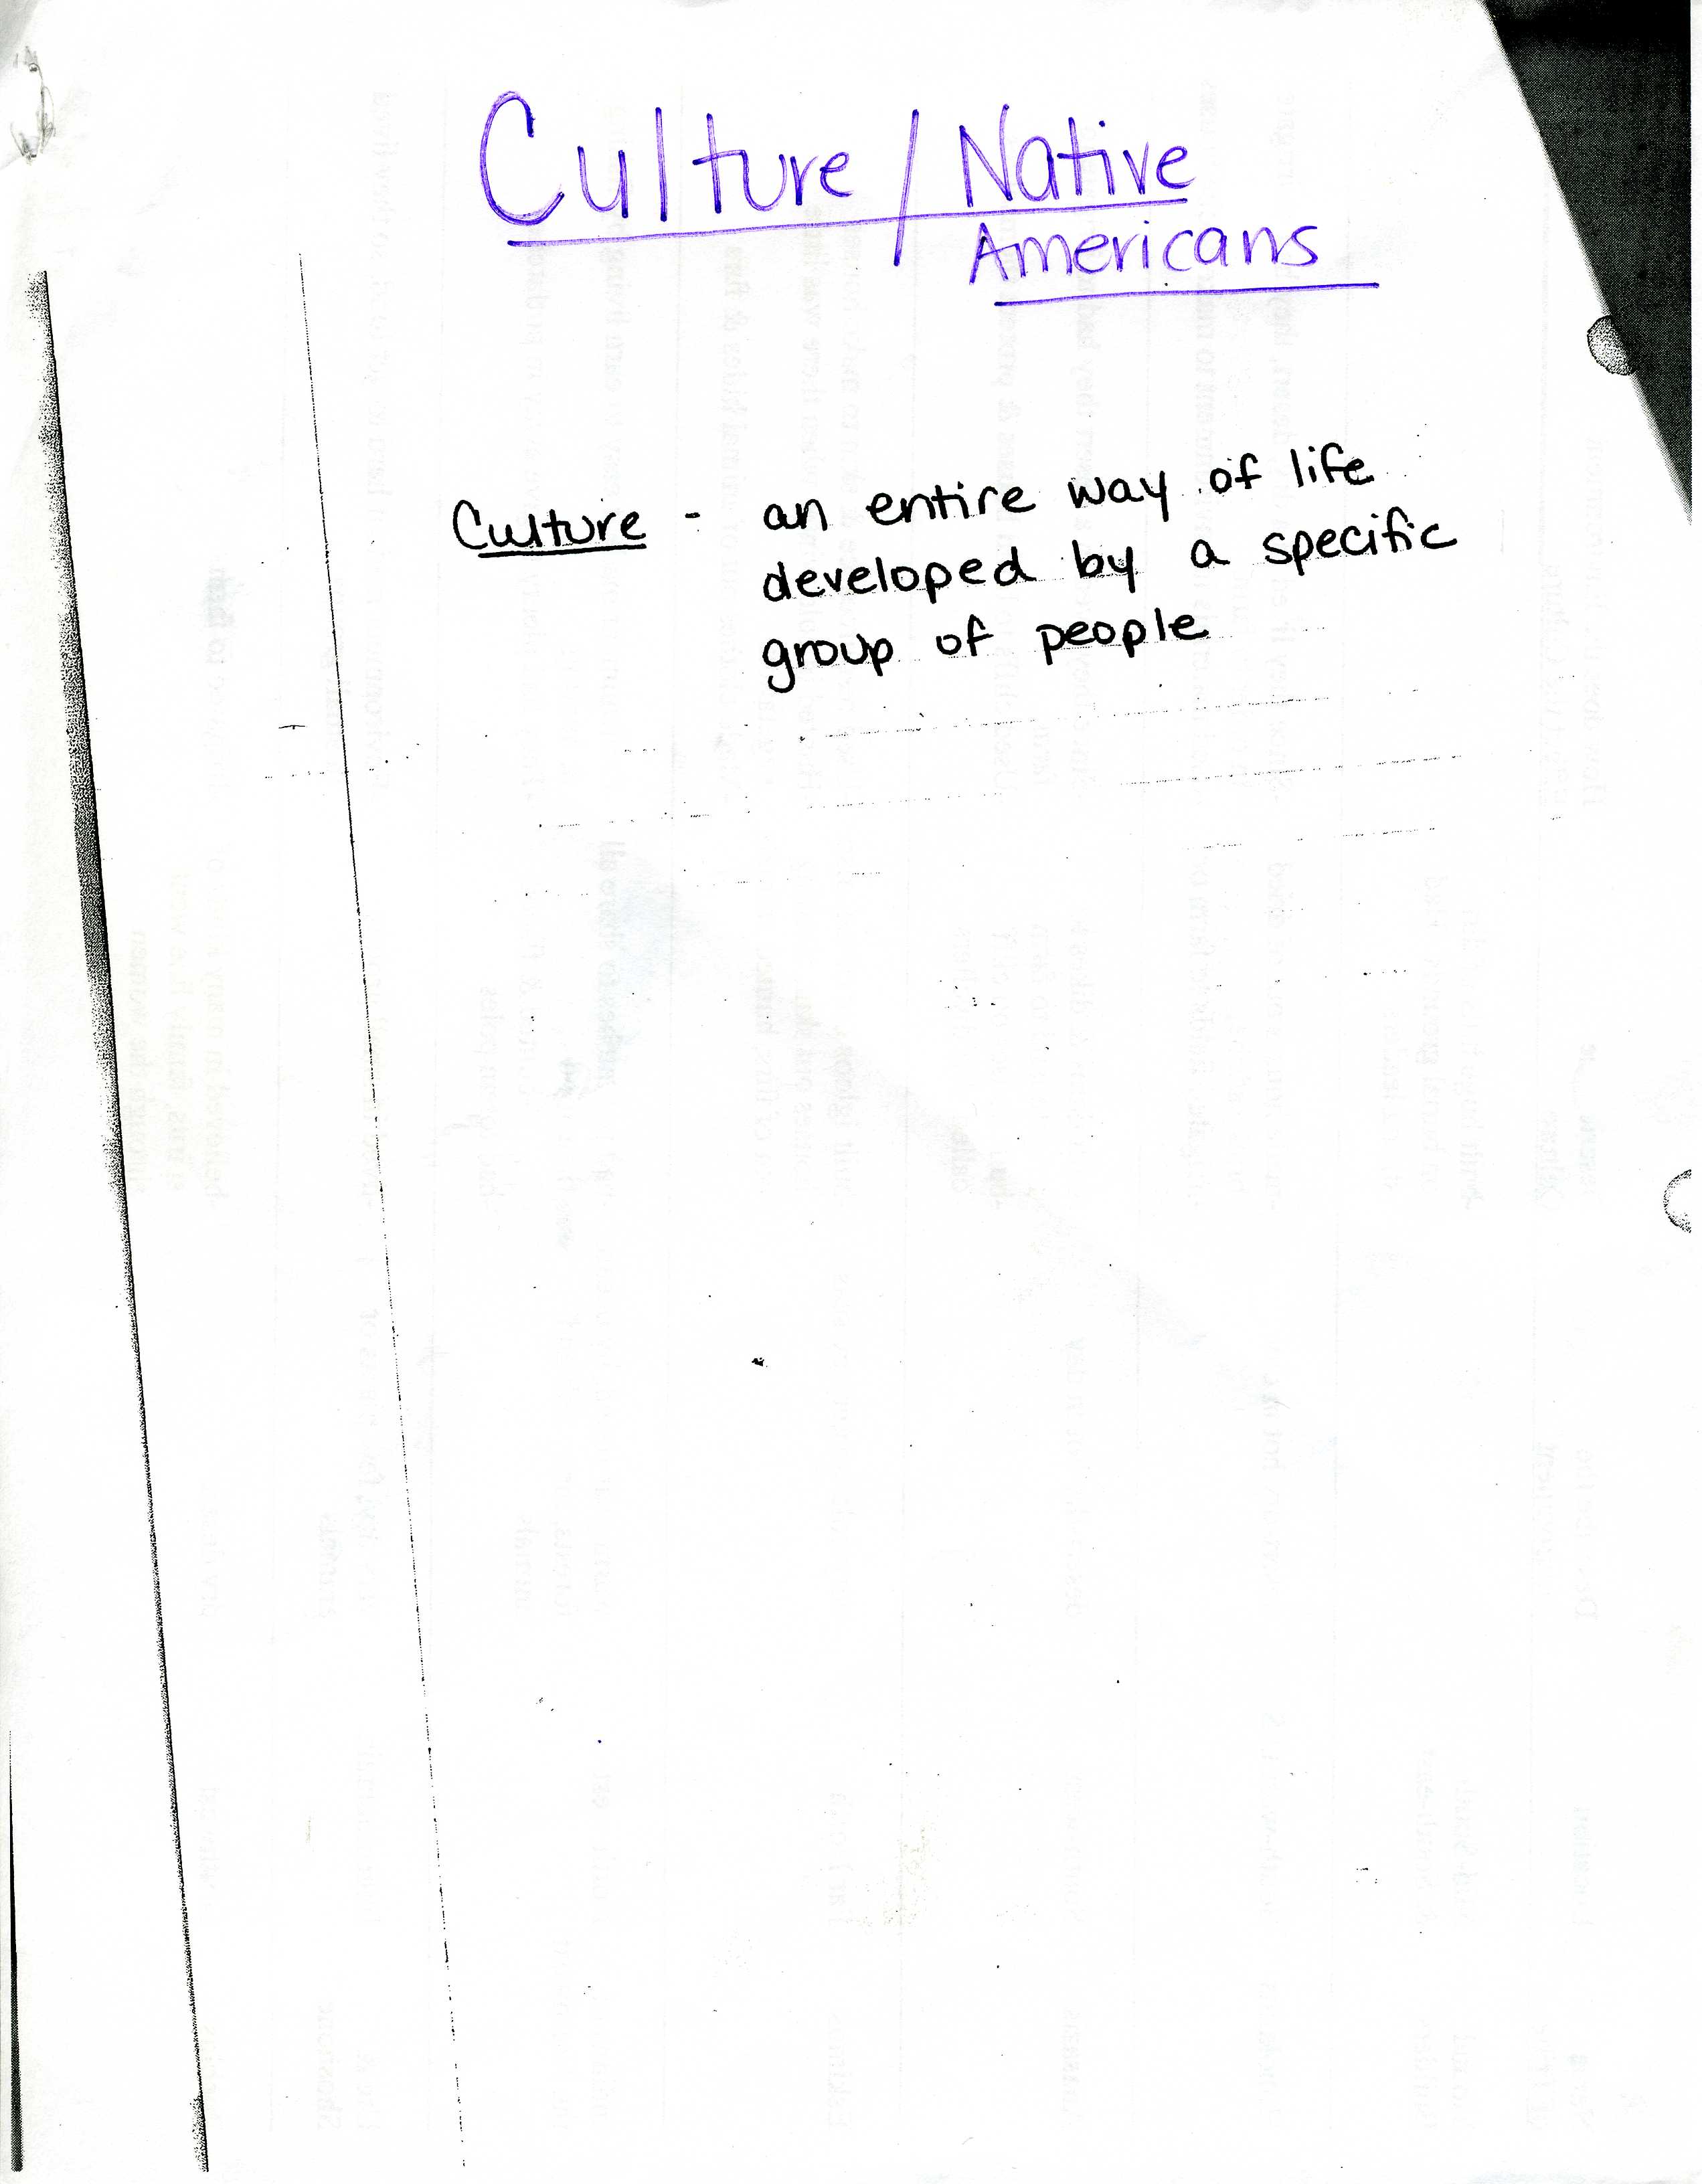 Culture / Native
Americans
Culture - an entire way of life
developed by a specific
group of people